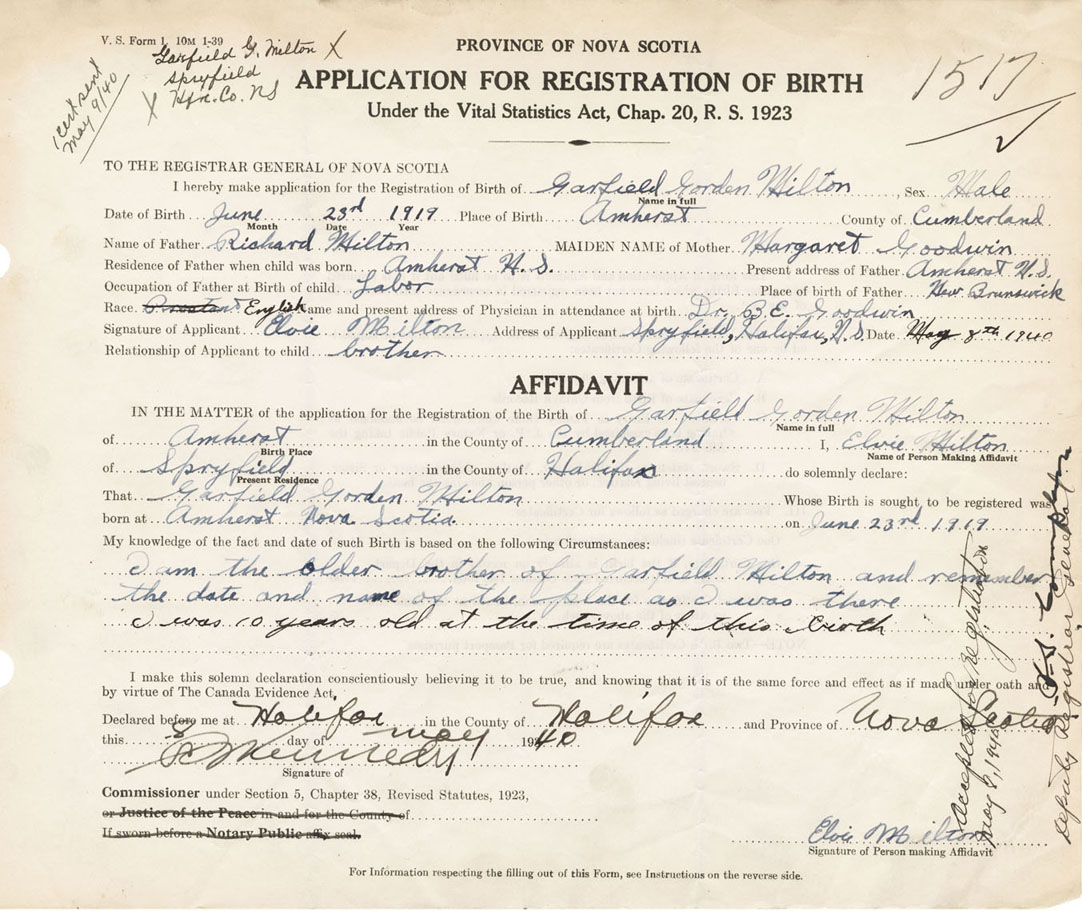 V. S. Form 1, 10M 1-39
Garfield G. Milton X
Spryfield
X Hfx. Co. NS
cert sent
May 9/40
PROVINCE OF NOVA SCOTIA
APPLICATION FOR REGISTRATION OF BIRTH
Under the Vital Statistics Act, Chap. 20, R. S. 1923
1517
TO THE REGISTRAR GENERAL OF NOVA SCOTIA
I hereby make application for the Registration of Birth of Garfield Gorden Milton Sex Male
Name in full
Date of Birth June 23rd 1919 Place of Birth Amherst County of Cumberland
Month Date Year
Name of Father Richard Milton MAIDEN NAME of Mother Margaret Goodwin
Residence of Father when child was born Amherst N.S. Present address of Father Amherst N.S.
Occupation of Father at Birth of child Labor Place of birth of Father New Brunswick
Race. English ame and present address of Physician in attendance at birth Dr. B. E. Goodwin
Signature of Applicant Elvie Milton Address of Applicant Spryfield, Halifax, N.S Date May 8th 1940
Relationship of Applicant to child brother
AFFIDAVIT
IN THE MATTER of the application for the Registration of the Birth of Garfield Gorden Milton
Name in full
of Amherst in the County of Cumberland I, Elvie Milton
Birth Place Name of Person Making Affidavit
of Spryfield in the County of Halifax do solemnly declare:
Present Residence
That Garfield Gorden Milton Whose Birth is sought to be registered was
born at Amherst Nova Scotia on June 23rd 1919
My knowledge of the fact and date of such Birth is based on the following Circumstances:
I am the older brother of Garfield Milton and remember
the date and name of the place as I was there
I was 10 years old at the time of this birth
I make this solemn declaration conscientiously believing it to be true, and knowing that it is of the same force and effect as if made under oath and
by virtue of The Canada Evidence Act,
Declared before me at Halifax in the County of Halifax and Province of Nova Scotia
this 8 day of May 1940
Kennedy
Signature of
Commissioner under Section 5, Chapter 38, Revised Statutes, 1923,
or Justice of the Peace in and for the County of
If sworn before a Notary Public affix seal.
Elvie Milton
Signature of Person making Affidavit
For Information respecting the filling out of this Form, see Instructions on the reverse side.
Accepted for registration
May 8, 1940
Deputy Registrar General